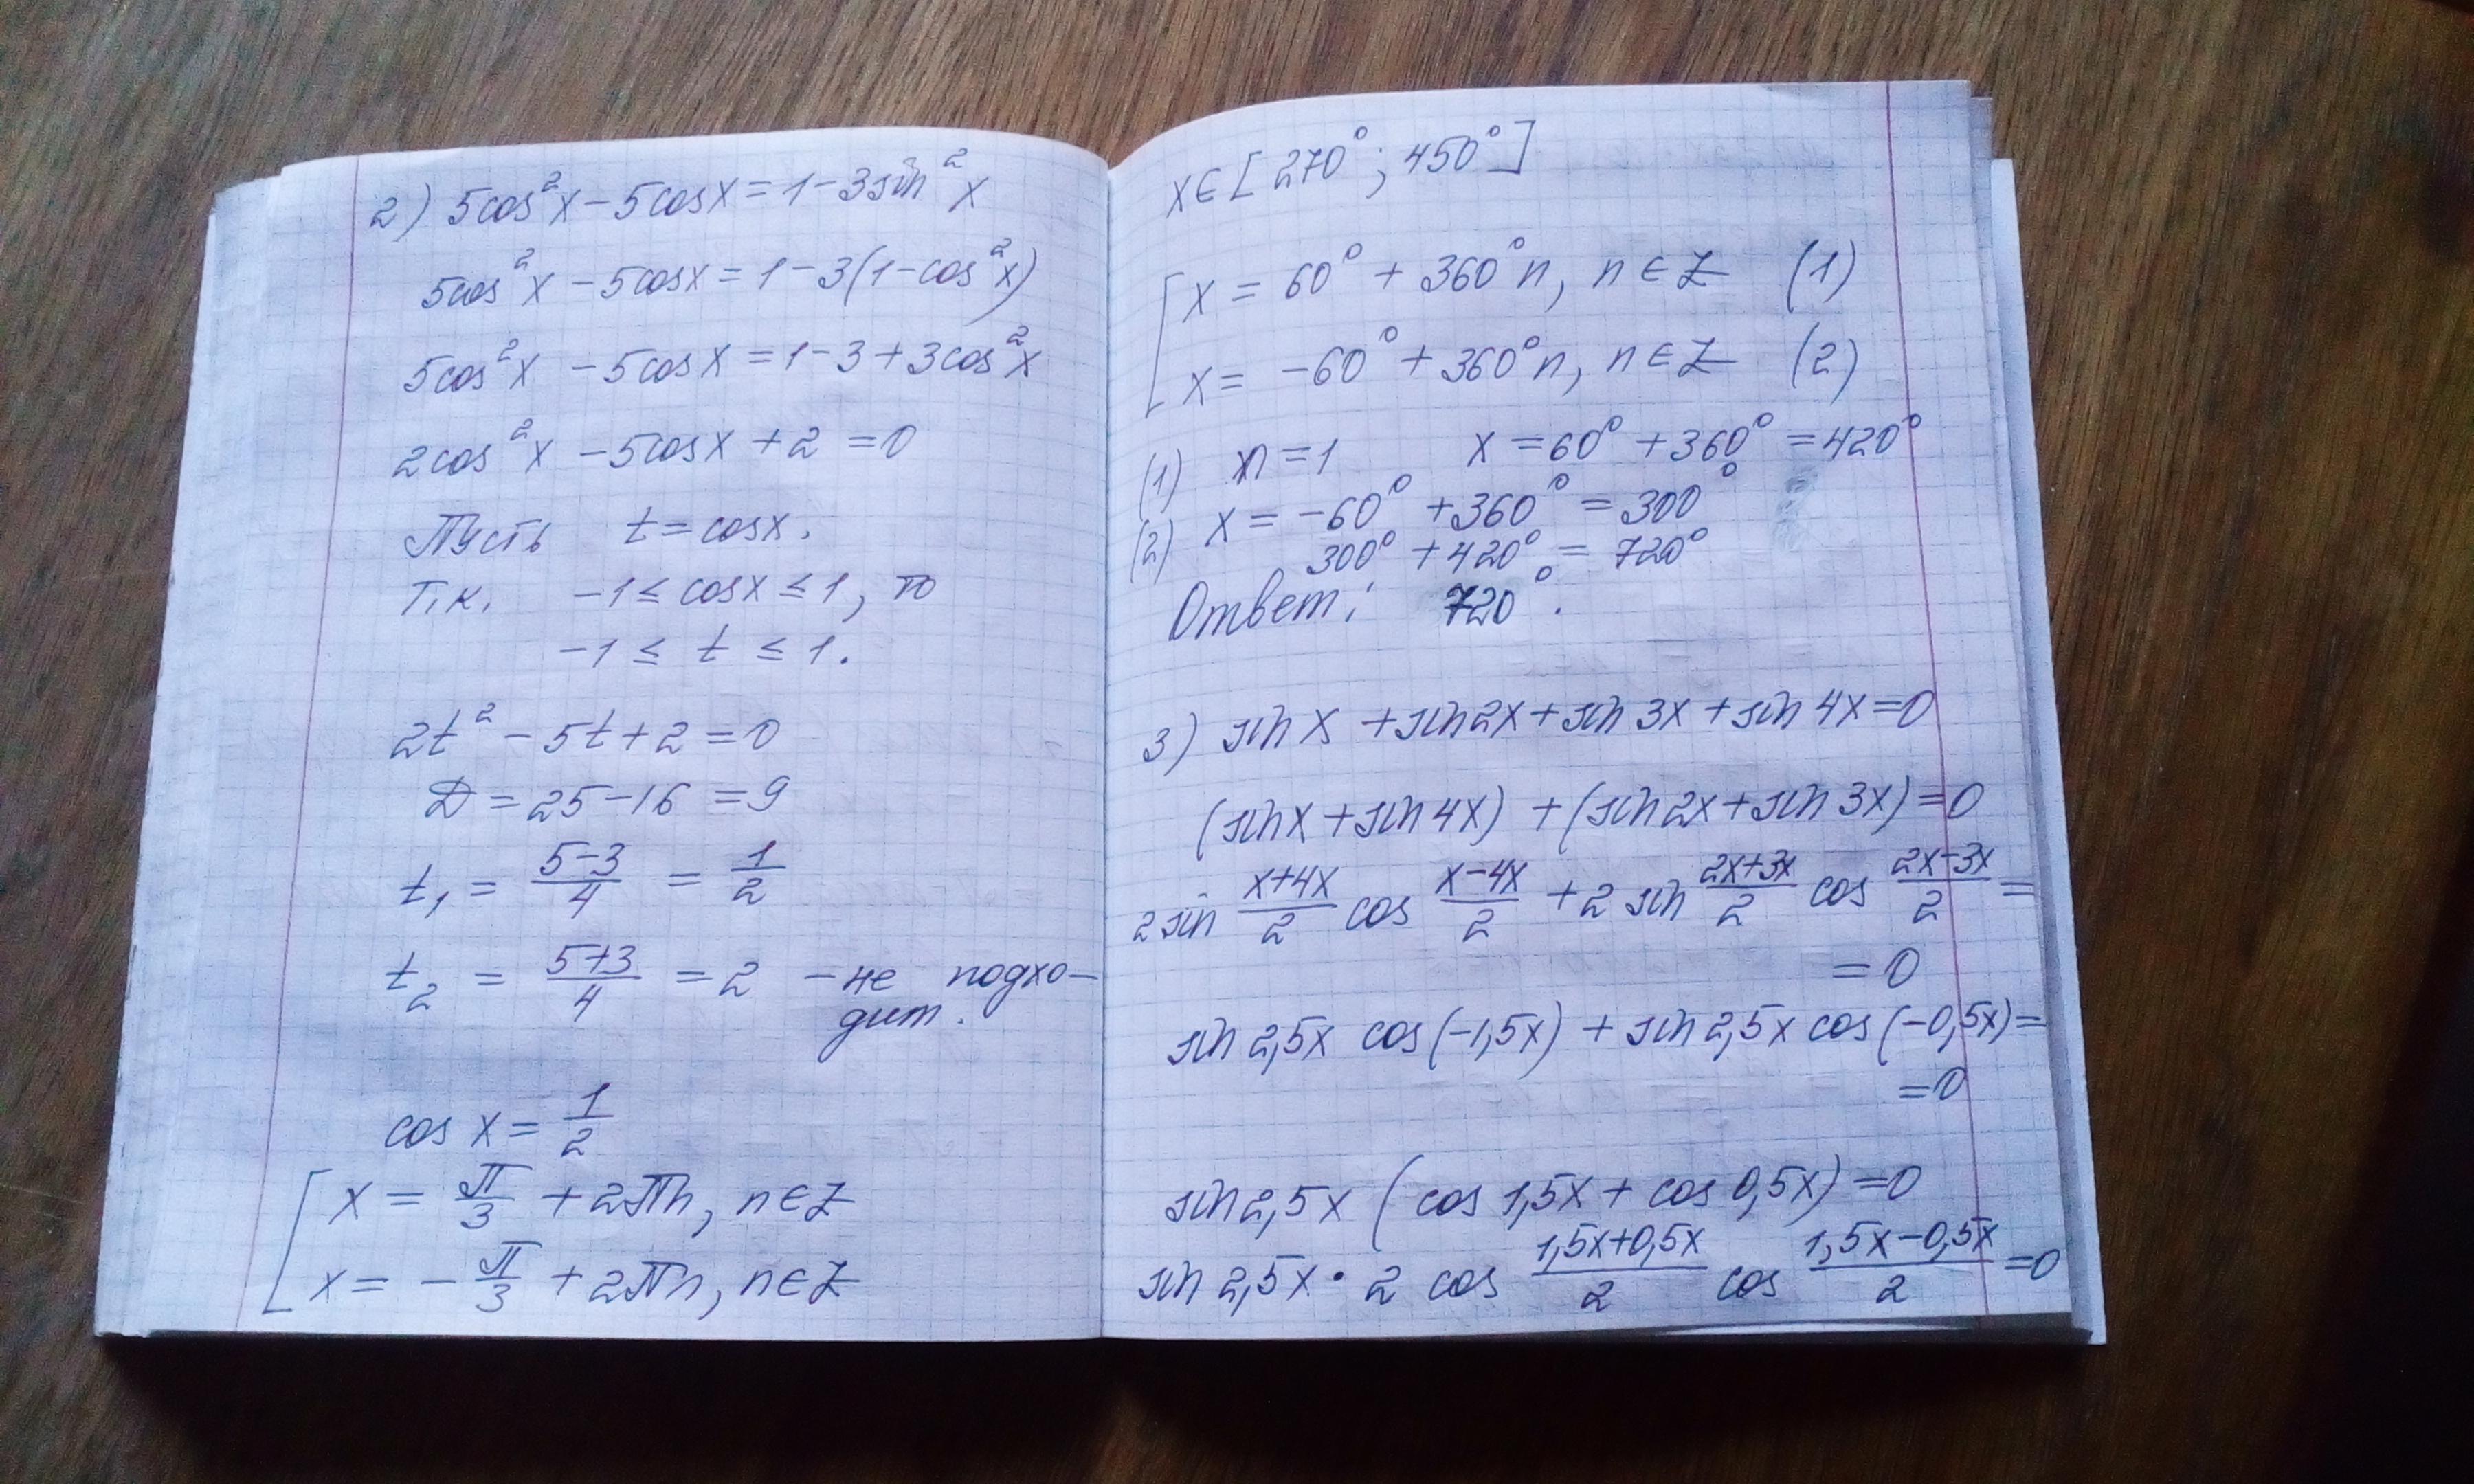 2) 5cos²x - 5cosx = 1 - 3sin²x
5cos²x - 5cosx = 1 - 3(1 - cos²x)
5cos²x - 5cosx = 1 - 3 + 3cos²x
2cos²x - 5cosx + 2 = 0
Пусть t = cosx.
Т.к. -1 ≤ cosx ≤ 1, то
-1 ≤ t ≤ 1.
2t² - 5t + 2 = 0
D = 25 - 16 = 9
t₁ = (5-3)/4 = 1/2
t₂ = (5+3)/4 = 2 - не подхо-
дит.
cos x = 1/2
[ x = π/3 + 2πn, n ∈ Z
x = -π/3 + 2πn, n ∈ Z
x ∈ [270°; 450°]
[ x = 60° + 360°n, n ∈ Z (1)
x = -60° + 360°n, n ∈ Z (2)
(1) n = 1 x = 60° + 360° = 420°
(2) x = -60° + 360° = 300°
300° + 420° = 720°
Ответ: 720°.
3) sin x + sin 2x + sin 3x + sin 4x = 0
(sin x + sin 4x) + (sin 2x + sin 3x) = 0
2 sin (x+4x)/2 cos (x-4x)/2 + 2 sin (2x+3x)/2 cos (2x-3x)/2 =
= 0
sin 2,5x cos(-1,5x) + sin 2,5x cos(-0,5x) =
= 0
sin 2,5x (cos 1,5x + cos 0,5x) = 0
sin 2,5x · 2 cos (1,5x+0,5x)/2 cos (1,5x-0,5x)/2 = 0